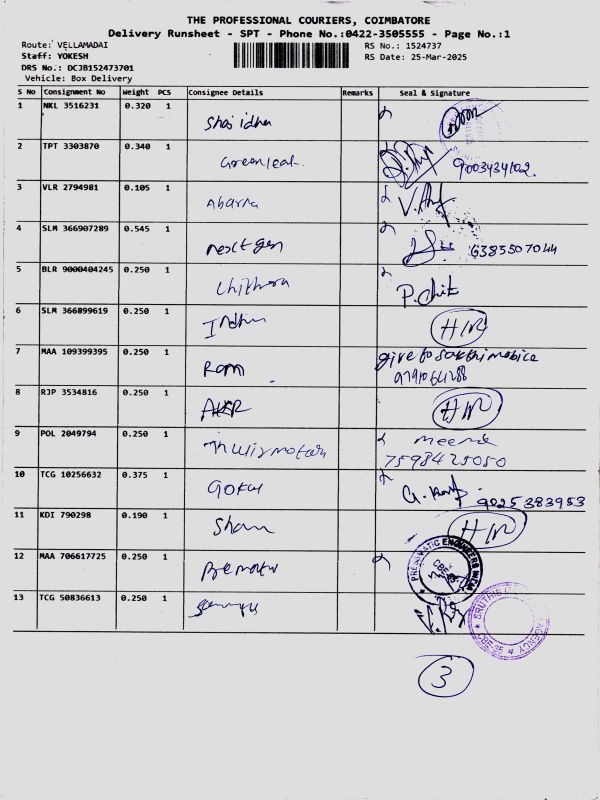 THE PROFESSIONAL COURIERS, COIMBATORE
Delivery Runsheet - SPT - Phone No.:0422-3505555 - Page No.:1
Route: VELLAMADAI
Staff: YOKESH
DRS No.: DCJB152473701
Vehicle: Box Delivery
RS No.: 1524737
RS Date: 25-Mar-2025
S No Consignment No Weight PCS Consignee Details Remarks Seal & Signature
1 NKL 3516231 0.320 1
2 TPT 3303870 0.340 1 Greenleaf 9003434102.
3 VLR 2794981 0.105 1 Abarna
4 SLM 366907289 0.545 1 nextgen 6385507044
5 BLR 9000404245 0.250 1 Chithora P.Chit
6 SLM 366899619 0.250 1 Indhu H/R
7 MAA 109399395 0.250 1 Ram give to sakthi mobice
8 RJP 3534816 0.250 1 H/R
9 POL 2049794 0.250 1 meena
7598425050
10 TCG 10256632 0.375 1 Gokul 9025383953
11 KDI 790298 0.190 1 Sham H/R
12 MAA 706617725 0.250 1
13 TCG 50836613 0.250 1
3